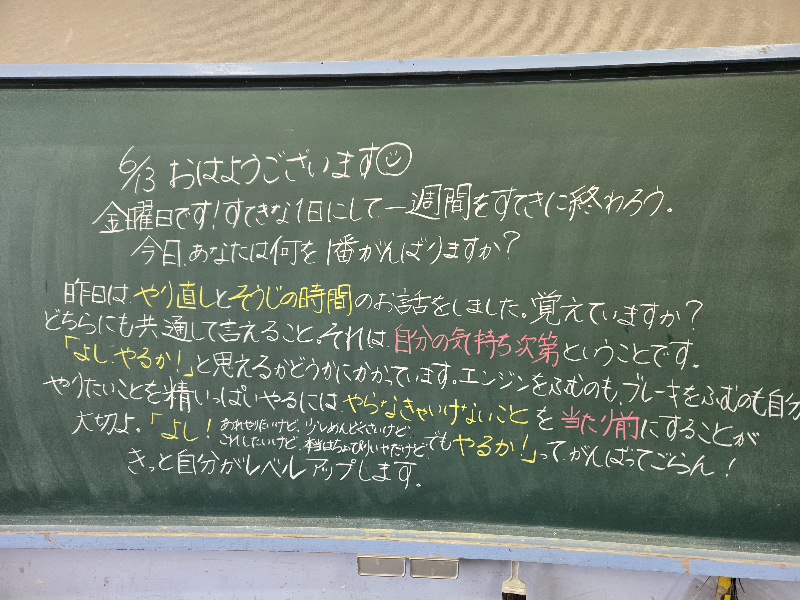 6/13 おはようございます
金曜日です!すてきな1日にして一週間をすてきに終わろう。
今日、あなたは何を1番がんばりますか?
昨日は、やり直しとそうじの時間のお話をしました。覚えていますか?
どちらにも共通して言えること。それは、自分の気持ち次第ということです。
「よし、やるか!」と思えるかどうかにかかっています。エンジンをふむのも、ブレーキをふむのも自分
やりたいことを精いっぱいやるには、やらなきゃいけないことを当たり前にすることが
大切よ。「よし!あれやりたいけど、少しめんどくさいけど、これしたいけど、本当はちょっぴりいやだけど、でもやるか!」って、がんばってごらん!
きっと自分がレベルアップします。